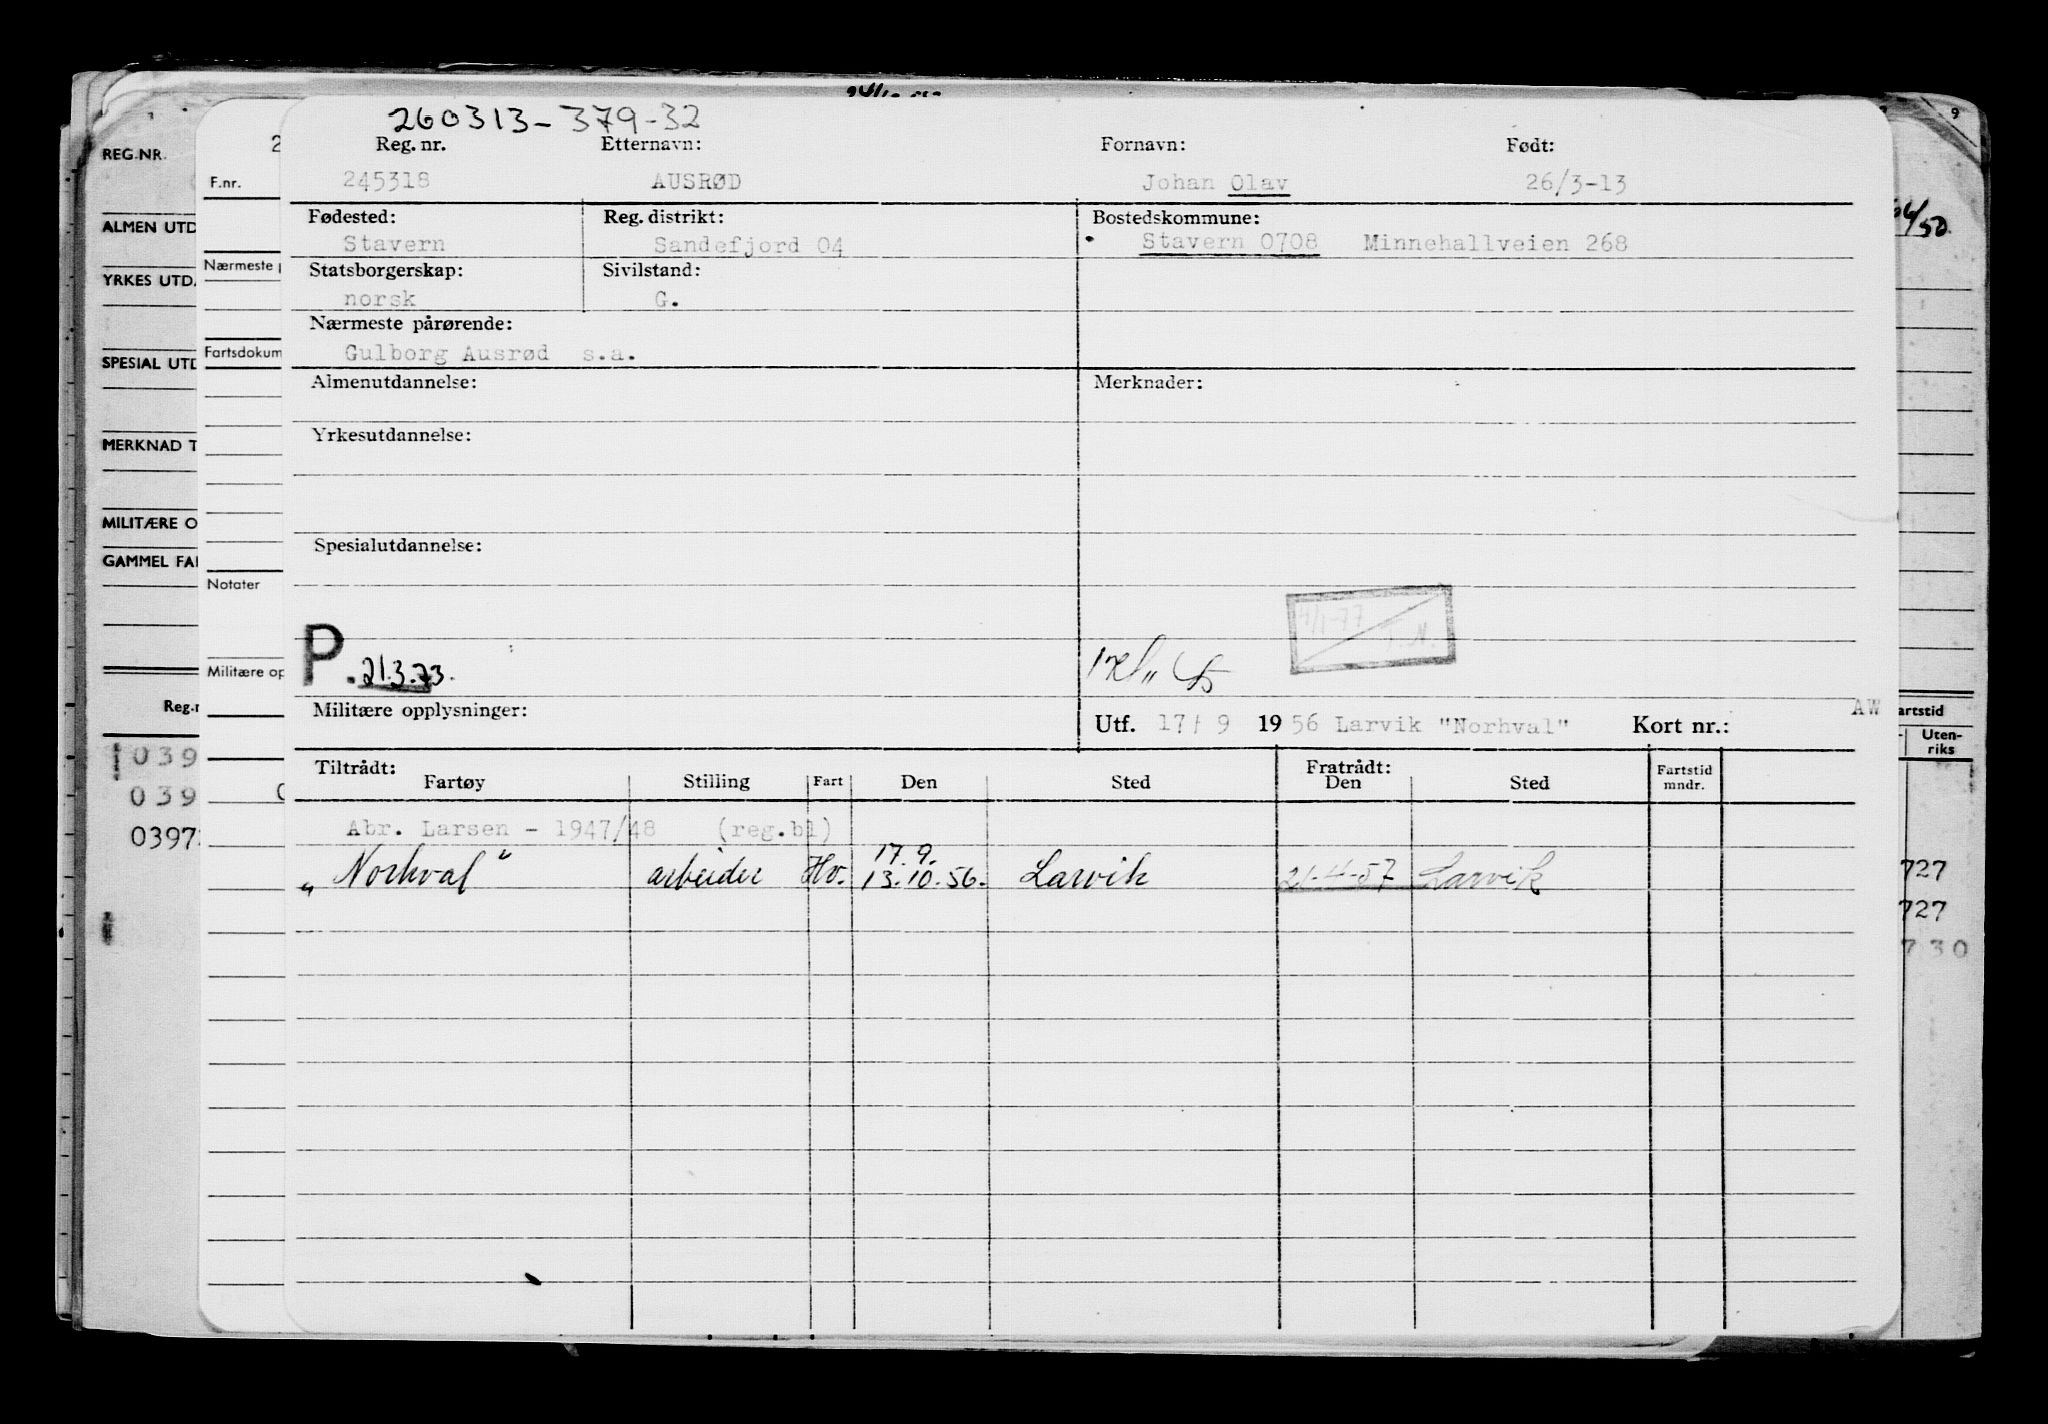 260313-379-32
Reg. nr. Etternavn: Fornavn: Født:
245318 AUSRØD Johan Olav 26/3-13
Fødested: Reg. distrikt: Bostedskommune:
Stavern Sandefjord 04 Stavern 0708 Minnehallveien 268
Statsborgerskap: Sivilstand:
norsk G.
Nærmeste pårørende:
Gulborg Ausrød s.a.
Almenutdannelse: Merknader:
Yrkesutdannelse:
Spesialutdannelse:
P. 21.3.73.
Militære opplysninger: Utf. 17/9 1956 Larvik "Norhval" Kort nr.: AW
Tiltrådt: Fratrådt:
Fartøy Stilling Fart Den Sted Den Sted Fartstid mndr.
Abr. Larsen - 1947/48 (reg.bl)
17.9.
"Norhval" arbeider Hv. 13.10.56. Larvik 21-4-57 Larvik
REG.NR.
ALMEN UTD
YRKES UTD.
SPESIAL UTD
MERKNAD T
MILITÆRE O
GAMMEL FA
Reg.n
039
039
0397
2
F.nr.
Nærmeste p
Fartsdokum
Notater
Militære op
9
/50
artstid
Uten-
riks
727
727
730